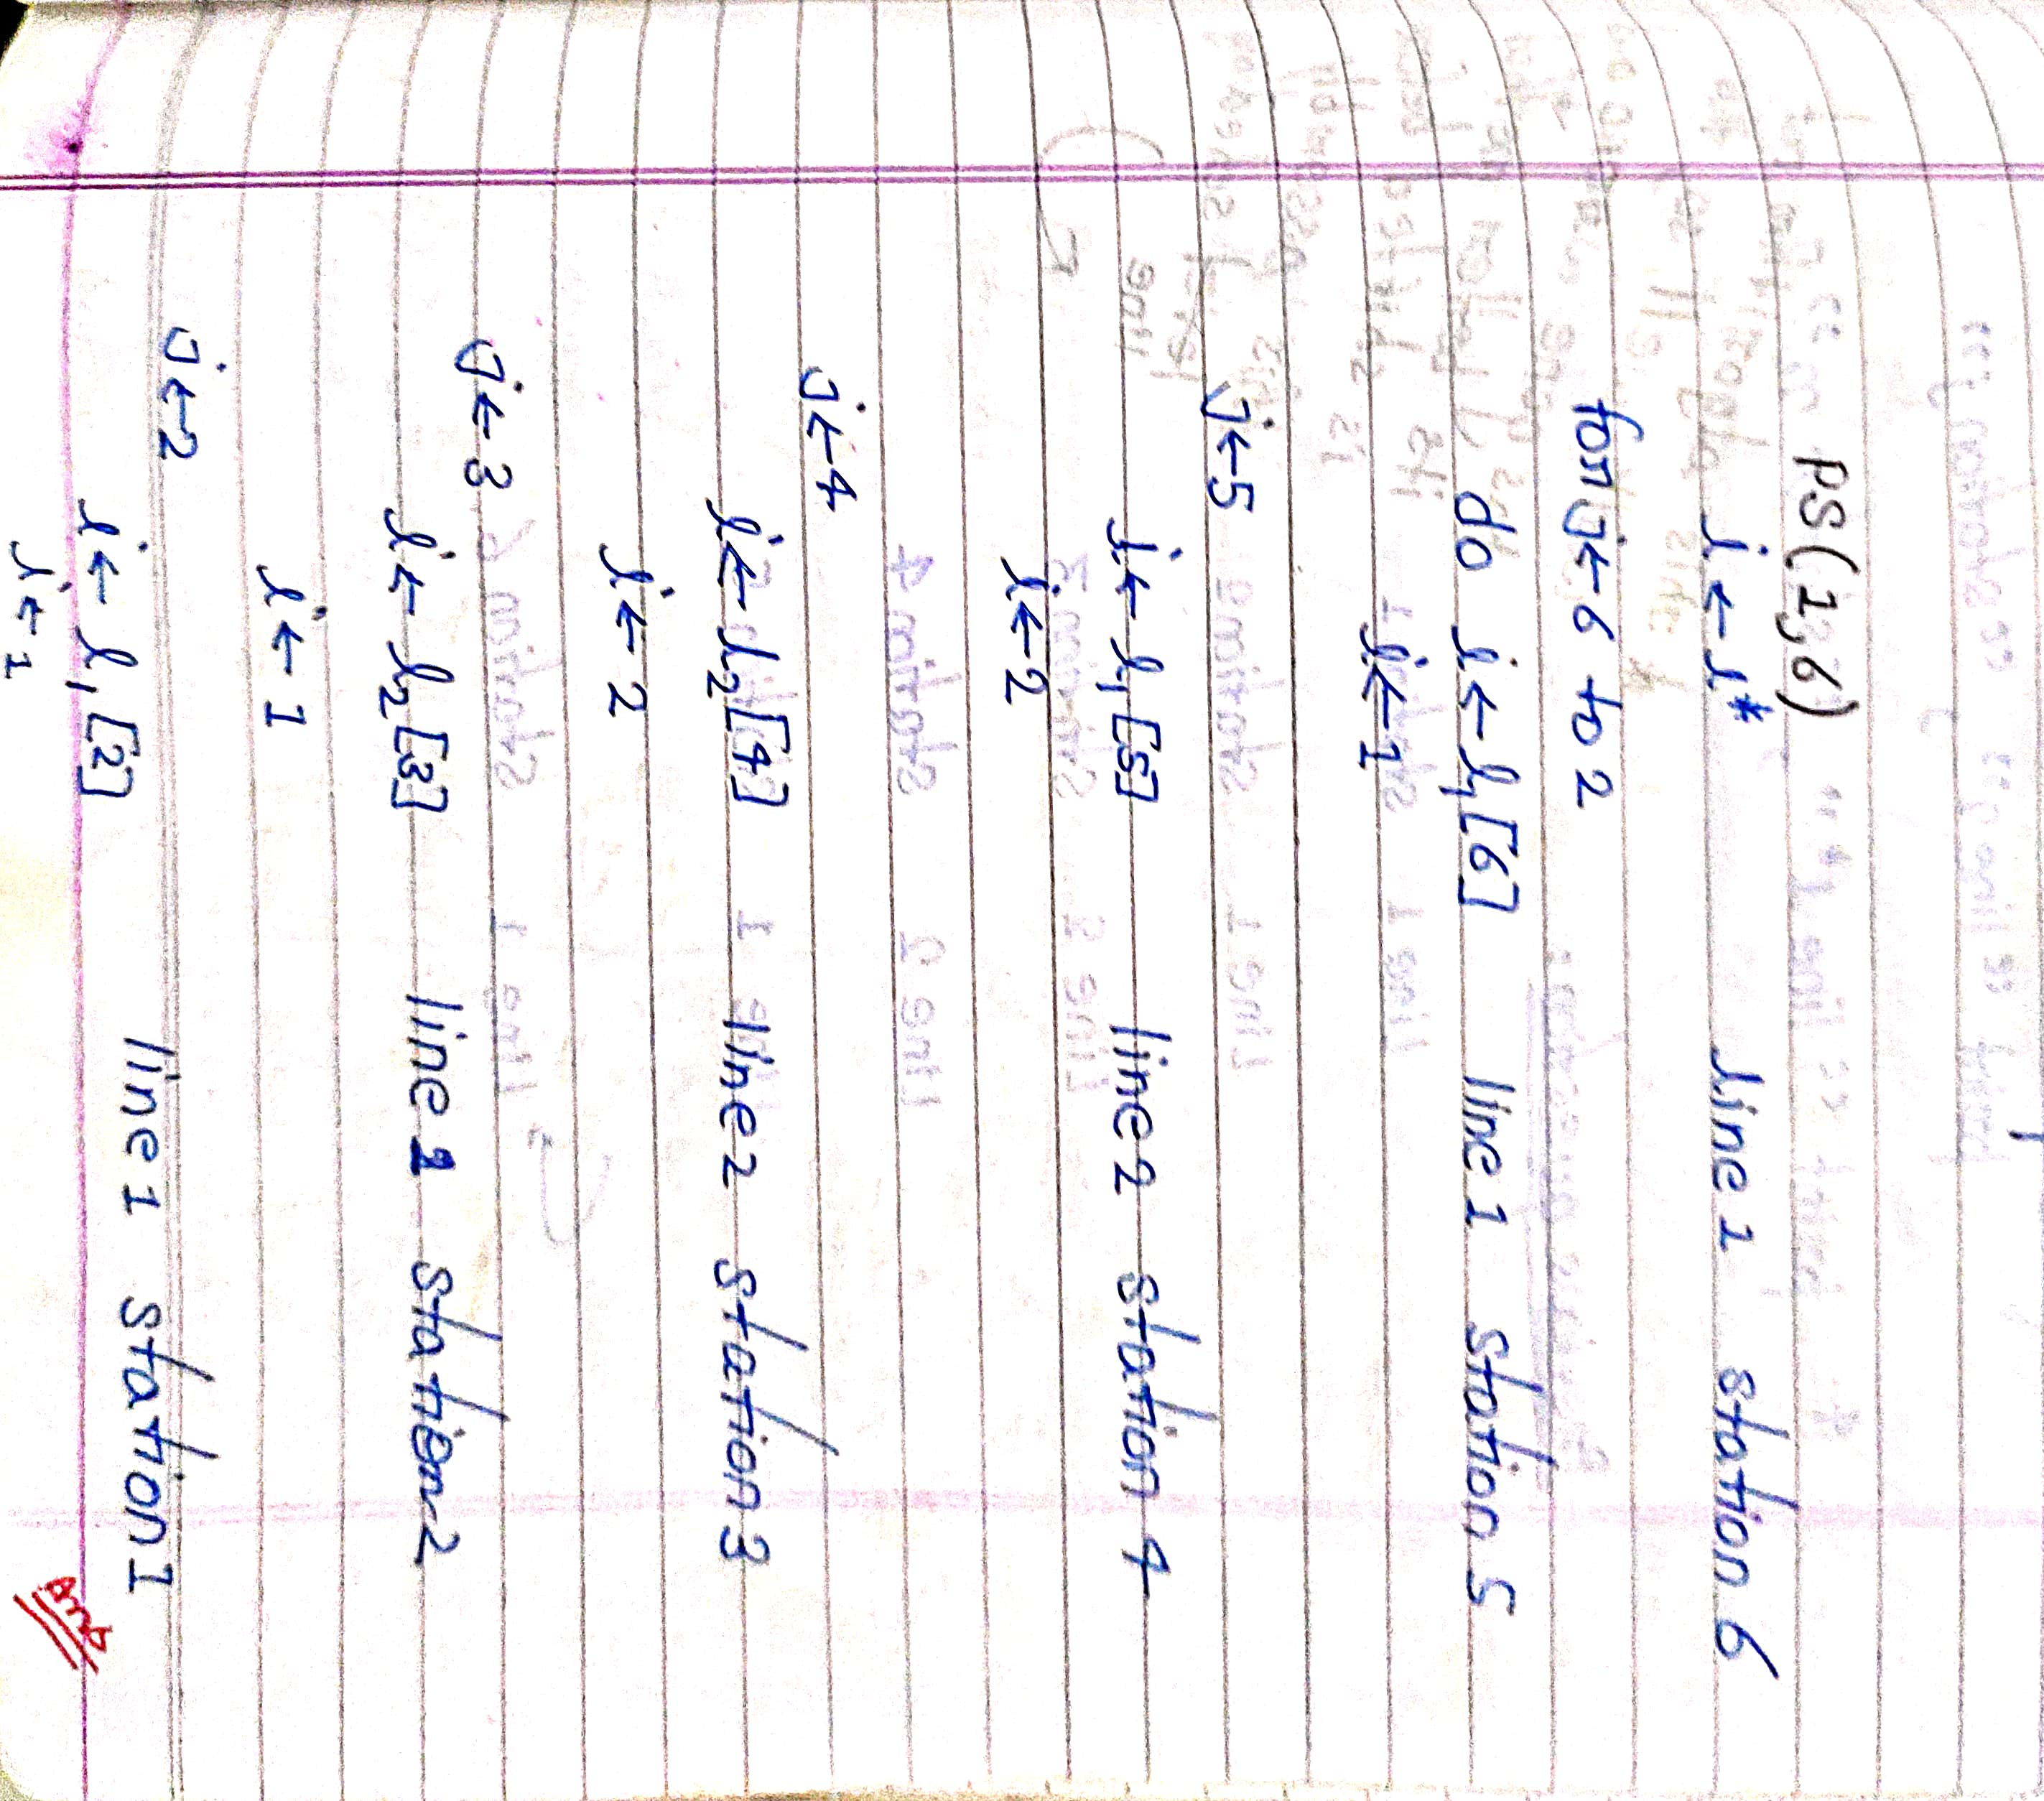 PS(1,6)
i ← l* line 1 station 6
for j ← 6 to 2
do i ← l1[6] line 1 station 5
i ← 1
j ← 5
i ← l1[5] line 2 station 4
i ← 2
j ← 4
i ← l2[4] line 2 station 3
i ← 2
j ← 3
i ← l2[3] line 1 station 2
i ← 1
j ← 2
i ← l1[2] line 1 station 1
i ← 1